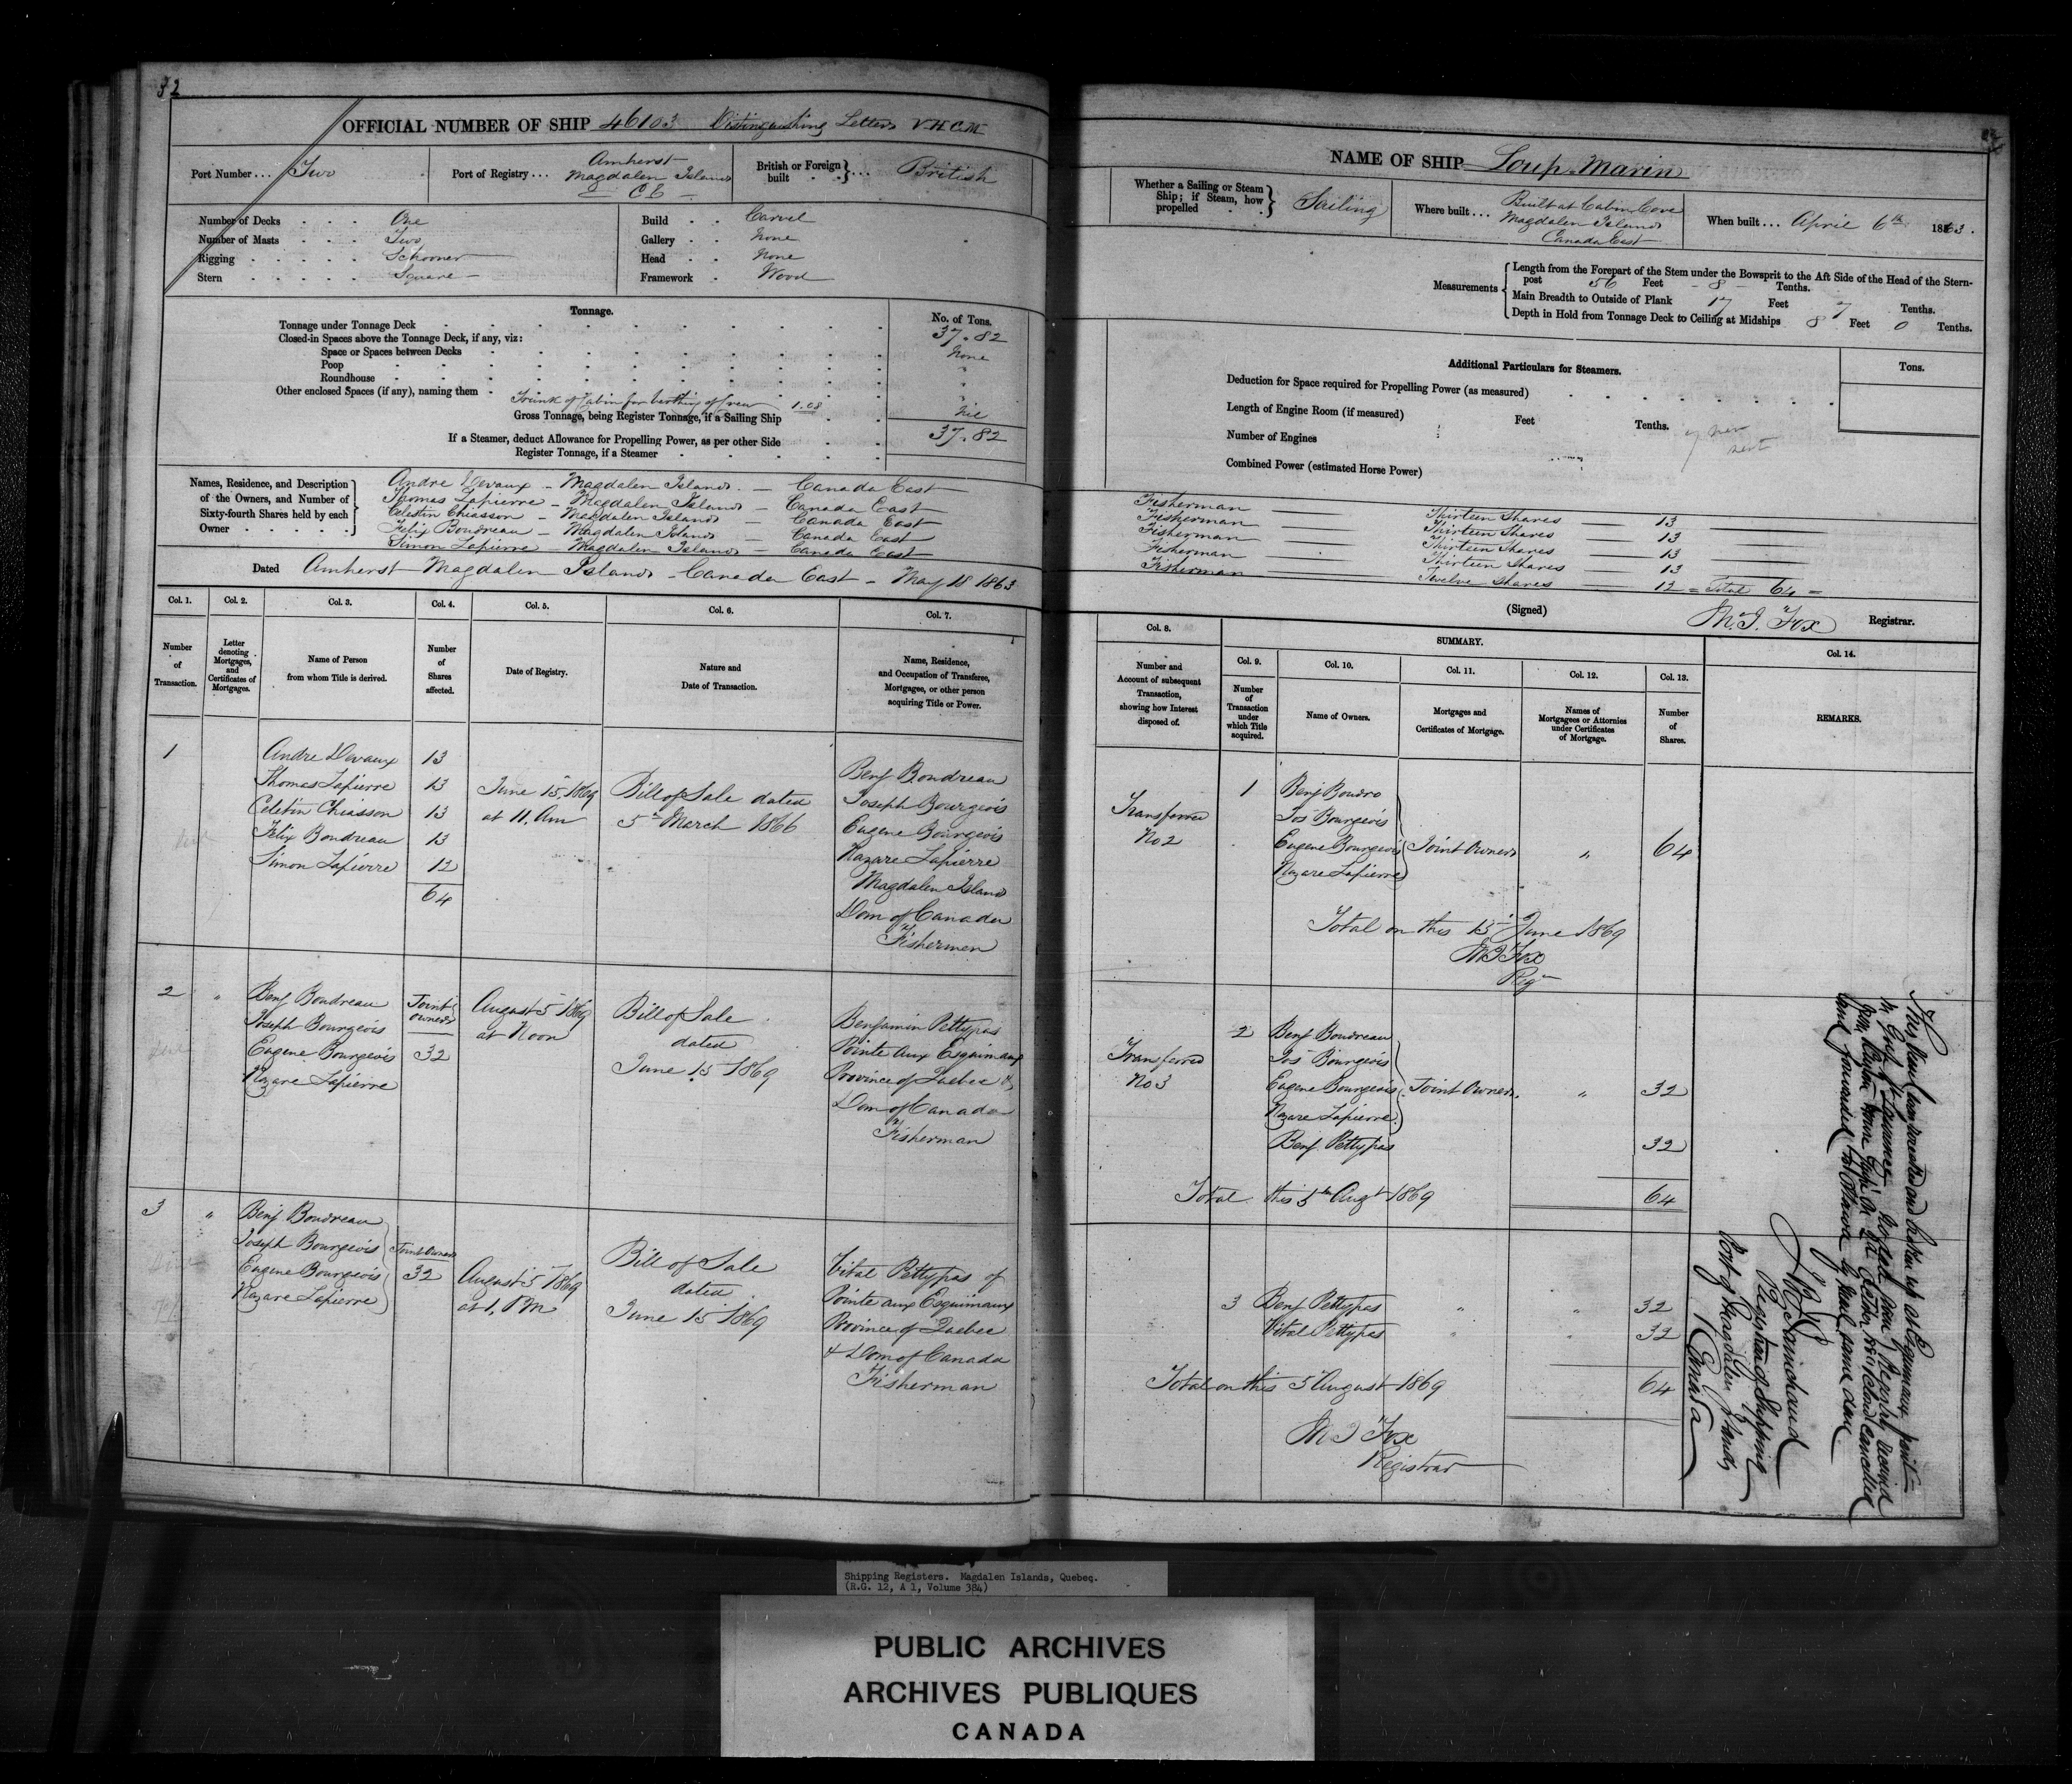 32
OFFICIAL NUMBER OF SHIP 46103 Distinguishing Letters V.H.C.M.
Port Number... Two
Port of Registry... Amherst
Magdalen Islands
C E
British or Foreign built British
Number of Decks One
Number of Masts Two
Rigging Schooner
Stern Square
Build Carvel
Gallery None
Head None
Framework Wood
Tonnage.
No. of Tons.
Tonnage under Tonnage Deck 37.82
Closed-in Spaces above the Tonnage Deck, if any, viz:
Space or Spaces between Decks None
Poop "
Roundhouse "
Other enclosed Spaces (if any), naming them "
Trunk of Cabin for berthing of Crew 1.08 Nil
Gross Tonnage, being Register Tonnage, if a Sailing Ship 37.82
If a Steamer, deduct Allowance for Propelling Power, as per other Side
Register Tonnage, if a Steamer
Names, Residence, and Description of the Owners, and Number of Sixty-fourth Shares held by each Owner
Andre Devaux - Magdalen Islands - Canada East
Thomas Lapierre - Magdalen Islands - Canada East
Celestin Chiasson - Magdalen Islands - Canada East
Felix Boudreau - Magdalen Islands - Canada East
Simon Lapierre - Magdalen Islands - Canada East
Dated Amherst Magdalen Islands - Canada East - May 18 1863
Col. 1. Col. 2. Col. 3. Col. 4. Col. 5. Col. 6. Col. 7.
Number of Transaction.
Letter denoting Mortgages, and Certificates of Mortgages.
Name of Person from whom Title is derived.
Number of Shares affected.
Date of Registry.
Nature and Date of Transaction.
Name, Residence, and Occupation of Transferee, Mortgagee, or other person acquiring Title or Power.
1
Andre Devaux 13
Thomas Lapierre 13
Celetin Chiasson 13
Felix Boudreau 13
Simon Lapierre 12
64
June 15 1869
at 11. Am
Bill of Sale dated
5th March 1866
Benj Boudreau
Joseph Bourgeois
Eugene Bourgeois
Nazare Lapierre
Magdalen Islands
Dom of Canada
Fishermen
2 "
Benj Boudreau
Joseph Bourgeois
Eugene Bourgeois
Nazare Lapierre
Joint
owners
32
August 5 1869
at Noon
Bill of Sale
dated
June 15 1869
Benjamin Pettypas
Pointe aux Esquimaux
Province of Quebec &
Dom of Canada
Fisherman
3 "
Benj Boudreau
Joseph Bourgeois
Eugene Bourgeois
Nazare Lapierre
Joint Owners
32
August 5 1869
at 1. PM
Bill of Sale
dated
June 15 1869
Vital Pettypas of
Pointe aux Esquimaux
Province of Quebec
& Dom of Canada
Fisherman
NAME OF SHIP Loup Marin
Whether a Sailing or Steam Ship; if Steam, how propelled Sailing
Where built... Built at Cabin Cove
Magdalen Islands
Canada East
When built... April 6th 1863.
Measurements
Length from the Forepart of the Stem under the Bowsprit to the Aft Side of the Head of the Stern-
post 56 Feet - 8 - Tenths.
Main Breadth to Outside of Plank 17 Feet 7 Tenths.
Depth in Hold from Tonnage Deck to Ceiling at Midships 8 Feet 0 Tenths.
Additional Particulars for Steamers.
Tons.
Deduction for Space required for Propelling Power (as measured)
Length of Engine Room (if measured) Feet Tenths.
Number of Engines
Combined Power (estimated Horse Power)
Fisherman Thirteen Shares 13
Fisherman Thirteen Shares 13
Fisherman Thirteen Shares 13
Fisherman Thirteen Shares 13
Fisherman Twelve Shares 12 = Total 64 =
(Signed) Registrar.
Col. 8.
Number and Account of subsequent Transaction, showing how Interest disposed of.
SUMMARY.
Col. 9. Col. 10. Col. 11. Col. 12. Col. 13. Col. 14.
Number of Transaction under which Title acquired.
Name of Owners.
Mortgages and Certificates of Mortgage.
Names of Mortgagees or Attornies under Certificates of Mortgage.
Number of Shares.
REMARKS.
Transferred
No 2
1
Benj Boudro
Jos Bourgeois
Eugene Bourgeois
Nazare Lapierre
Joint Owners " 64
Total on this 15 June 1869
Fox
Reg
Transferred
No 3
2
Benj Boudreau
Jos Bourgeois
Eugene Bourgeois
Nazare Lapierre
Joint Owners " 32
Benj Pettypas 32
Total this 5th Augt 1869 64
3 Benj Pettypas " " 32
Vital Pettypas " " 32
Total on this 5 August 1869 64
Fox
Registrar
Registrar of Shipping
Port of Magdalen Islands
Canada
Shipping Registers. Magdalen Islands, Quebeq.
(R.G. 12, A 1, Volume 384)
PUBLIC ARCHIVES
ARCHIVES PUBLIQUES
CANADA